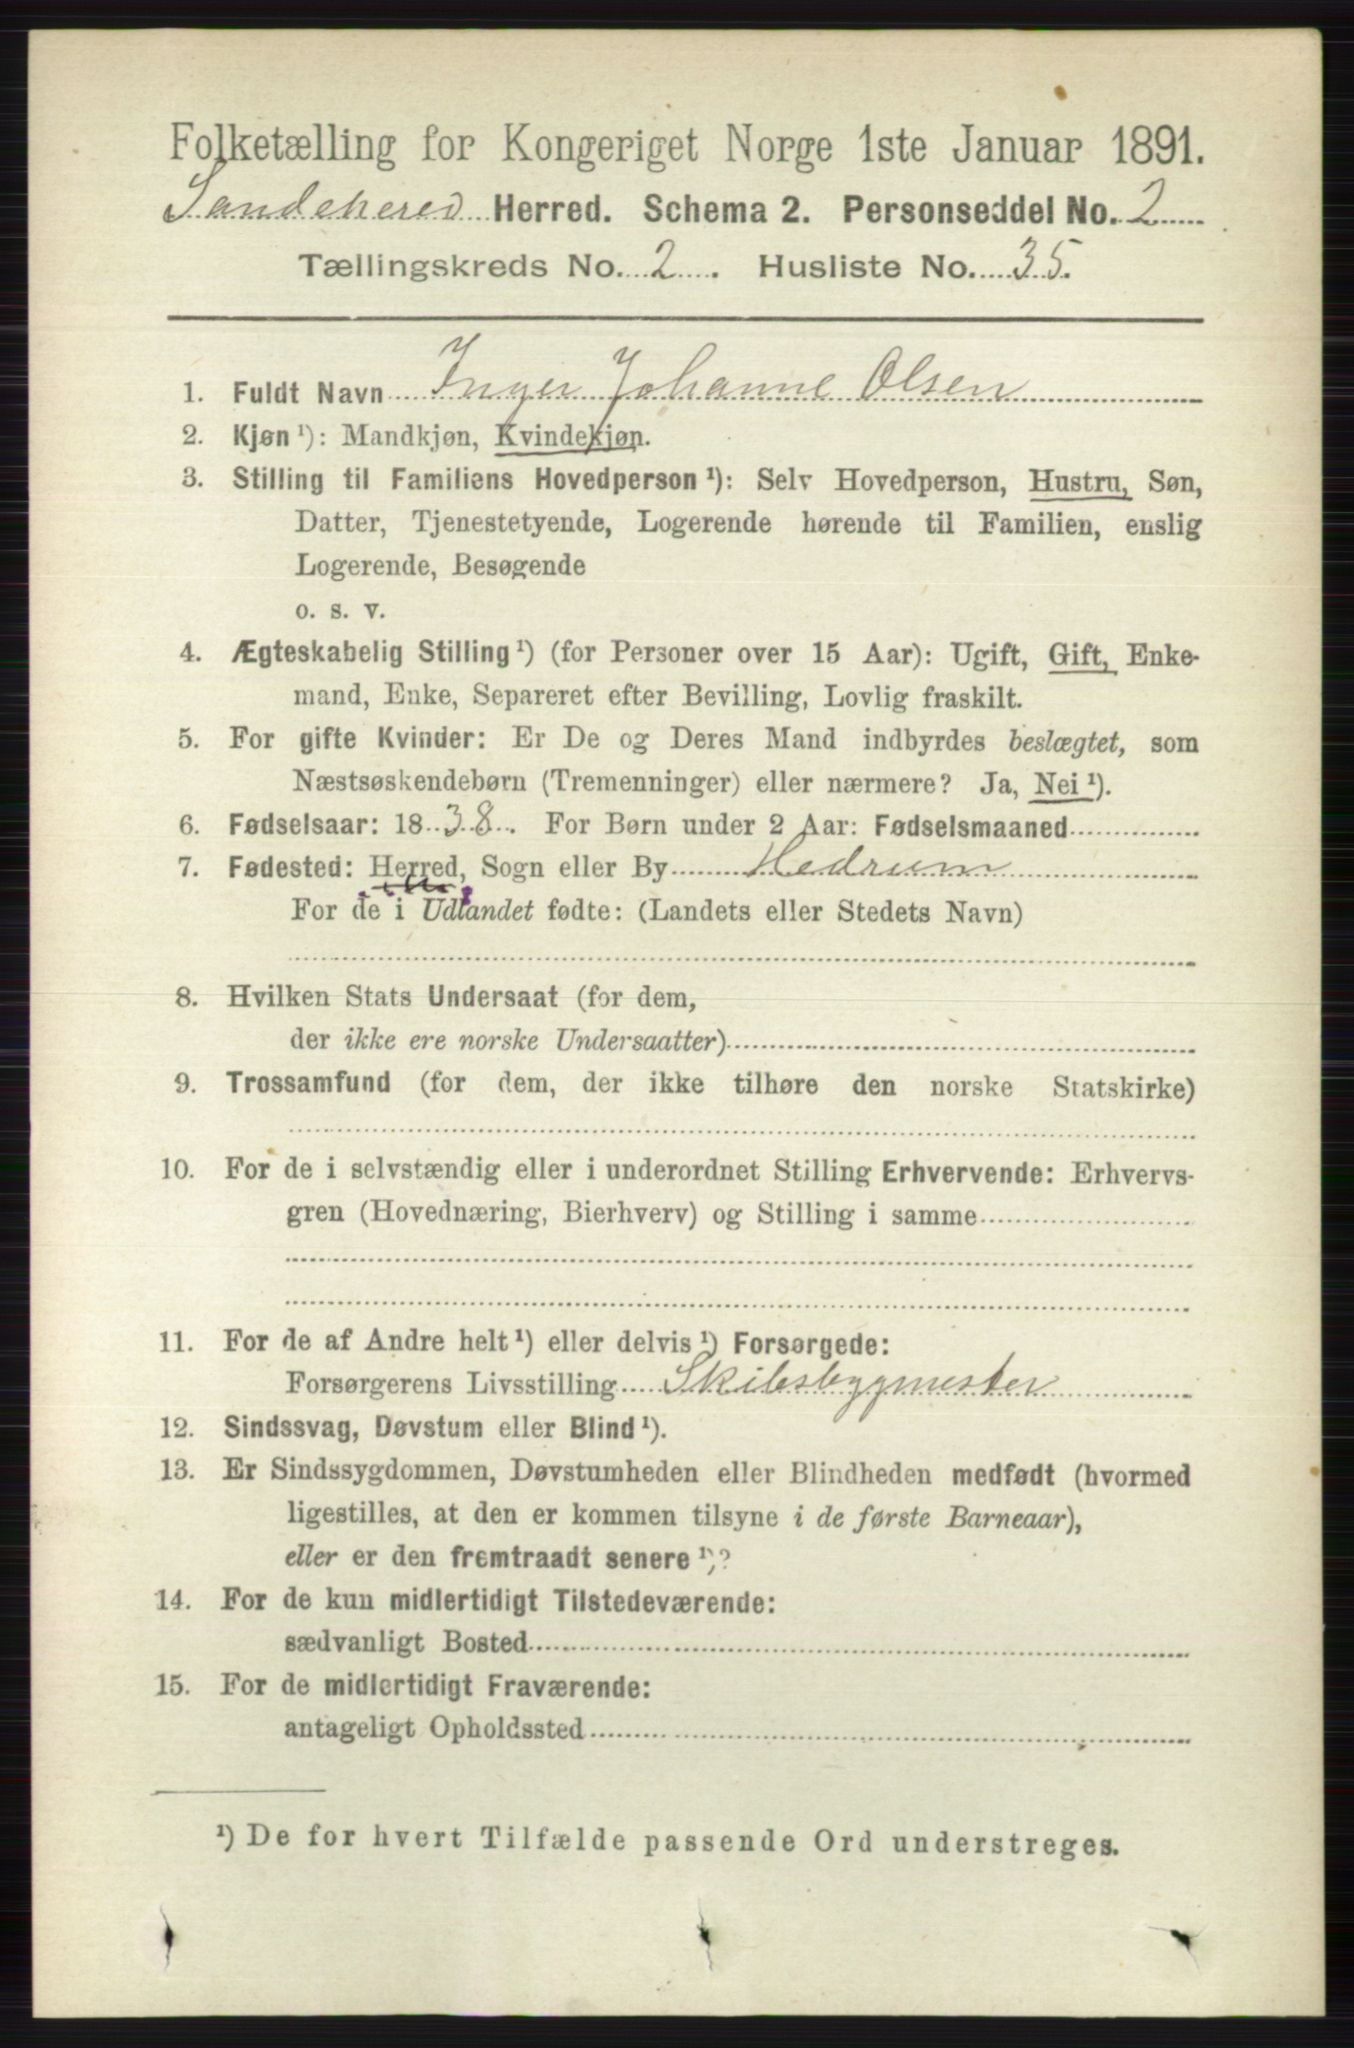 Folketælling for Kongeriget Norge 1ste Januar 1891.
Sandeherred Herred. Schema 2. Personseddel No. 2
Tællingskreds No. 2. Husliste No. 35.
1. Fuldt Navn Inger Johanne Olsen
2. Kjøn ¹): Mandkjøn, Kvindekjøn.
3. Stilling til Familiens Hovedperson ¹): Selv Hovedperson, Hustru, Søn,
Datter, Tjenestetyende, Logerende hørende til Familien, enslig
Logerende, Besøgende
o. s. v.
4. Ægteskabelig Stilling ¹) (for Personer over 15 Aar): Ugift, Gift, Enke-
mand, Enke, Separeret efter Bevilling, Lovlig fraskilt.
5. For gifte Kvinder: Er De og Deres Mand indbyrdes beslægtet, som
Næstsøskendebørn (Tremenninger) eller nærmere? Ja, Nei ¹).
6. Fødselsaar: 1838. For Børn under 2 Aar: Fødselsmaaned
7. Fødested: Herred, Sogn eller By Hedrum
For de i Udlandet fødte: (Landets eller Stedets Navn)
8. Hvilken Stats Undersaat (for dem,
der ikke ere norske Undersaatter)
9. Trossamfund (for dem, der ikke tilhøre den norske Statskirke)
10. For de i selvstændig eller i underordnet Stilling Erhvervende: Erhvervs-
gren (Hovednæring, Bierhverv) og Stilling i samme
11. For de af Andre helt ¹) eller delvis ¹) Forsørgede:
Forsørgerens Livsstilling Skibsbygmester
12. Sindssvag, Døvstum eller Blind ¹).
13. Er Sindssygdommen, Døvstumheden eller Blindheden medfødt (hvormed
ligestilles, at den er kommen tilsyne i de første Barneaar),
eller er den fremtraadt senere ¹)?
14. For de kun midlertidigt Tilstedeværende:
sædvanligt Bosted
15. For de midlertidigt Fraværende:
antageligt Opholdssted
¹) De for hvert Tilfælde passende Ord understreges.